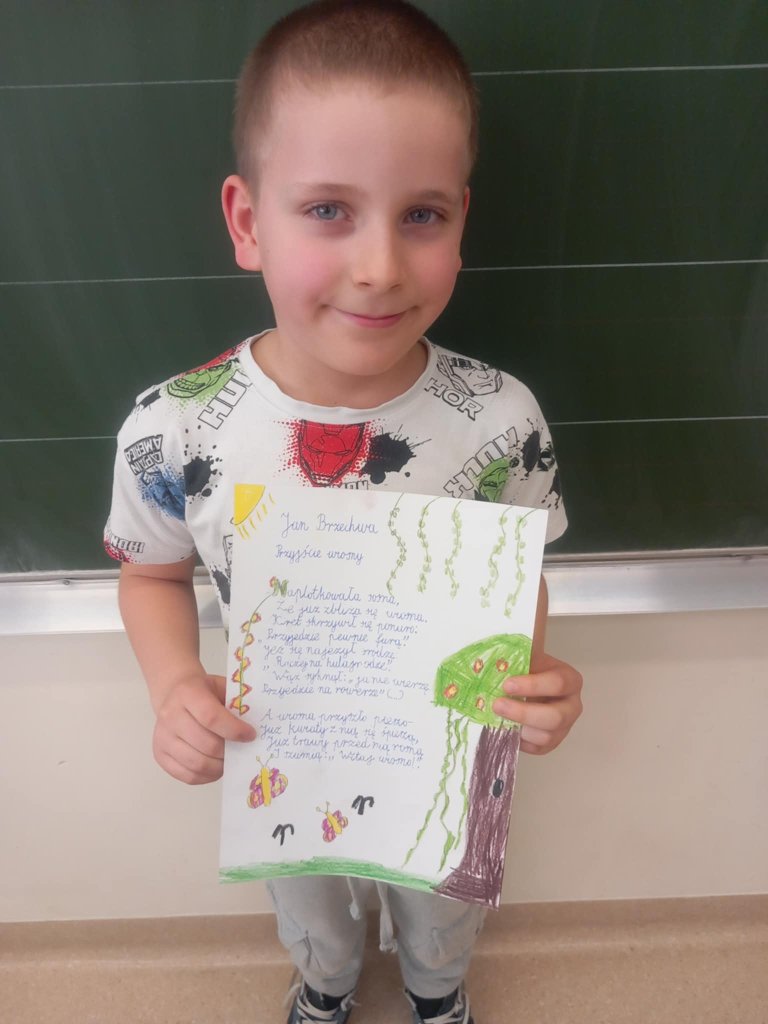 HUL
HOR
CAPTAIN
AMERICA
HULK
MAN
IRON
Jan Brzechwa
Przyjście wiosny
Naplotkowała sosna,
Że już zbliża się wiosna.
Kret skrzywił się ponuro:
„Przyjedzie pewnie furą."
Jeż się najeżył srodze
„Raczej na hulajnodze."
Wąż syknął: „ja nie wierzę
Przyjedzie na rowerze" (...)
A wiosna przyszła pieszo-
Już kwiaty z nią się śpieszą,
Już trawy przed nią rosną
I szumią: „Witaj wiosno!".